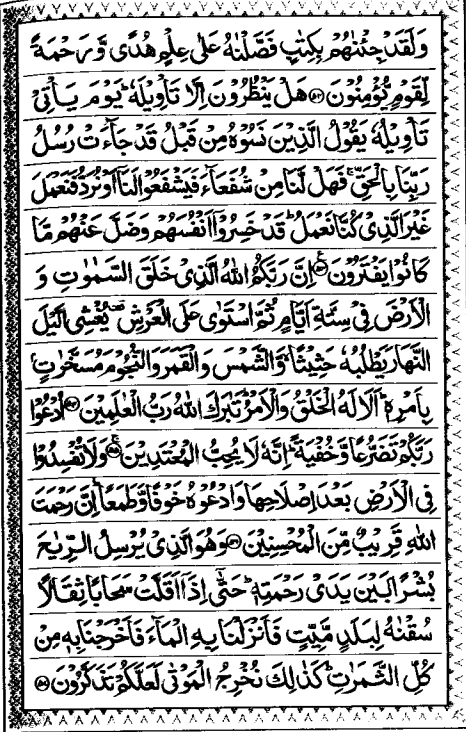 وَلَقَدْ جِئْنٰهُمْ بِكِتٰبٍ فَصَّلْنٰهُ عَلٰى عِلْمٍ هُدًى وَّرَحْمَةً
لِّقَوْمٍ يُّؤْمِنُوْنَ ﴿۵۲﴾ هَلْ يَنْظُرُوْنَ اِلَّا تَاْوِيْلَهٗ ؕ يَوْمَ يَاْتِيْ
تَاْوِيْلُهٗ يَقُوْلُ الَّذِيْنَ نَسُوْهُ مِنْ قَبْلُ قَدْ جَآءَتْ رُسُلُ
رَبِّنَا بِالْحَقِّ ۚ فَهَلْ لَّنَا مِنْ شُفَعَآءَ فَيَشْفَعُوْا لَنَاۤ اَوْ نُرَدُّ فَنَعْمَلَ
غَيْرَ الَّذِيْ كُنَّا نَعْمَلُ ؕ قَدْ خَسِرُوْۤا اَنْفُسَهُمْ وَضَلَّ عَنْهُمْ مَّا
كَانُوْا يَفْتَرُوْنَ ﴿۵۳﴾ اِنَّ رَبَّكُمُ اللّٰهُ الَّذِيْ خَلَقَ السَّمٰوٰتِ وَ
الْاَرْضَ فِيْ سِتَّةِ اَيَّامٍ ثُمَّ اسْتَوٰى عَلَى الْعَرْشِ ۫ يُغْشِى الَّيْلَ
النَّهَارَ يَطْلُبُهٗ حَثِيْثًا ۙ وَّالشَّمْسَ وَالْقَمَرَ وَالنُّجُوْمَ مُسَخَّرٰتٍۭ
بِاَمْرِهٖ ؕ اَلَا لَهُ الْخَلْقُ وَالْاَمْرُ ؕ تَبٰرَكَ اللّٰهُ رَبُّ الْعٰلَمِيْنَ ﴿۵۴﴾ اُدْعُوْا
رَبَّكُمْ تَضَرُّعًا وَّخُفْيَةً ؕ اِنَّهٗ لَا يُحِبُّ الْمُعْتَدِيْنَ ﴿۵۵﴾ وَلَا تُفْسِدُوْا
فِي الْاَرْضِ بَعْدَ اِصْلَاحِهَا وَادْعُوْهُ خَوْفًا وَّطَمَعًا ؕ اِنَّ رَحْمَتَ
اللّٰهِ قَرِيْبٌ مِّنَ الْمُحْسِنِيْنَ ﴿۵۶﴾ وَهُوَ الَّذِيْ يُرْسِلُ الرِّيٰحَ
بُشْرًۢا بَيْنَ يَدَيْ رَحْمَتِهٖ ؕ حَتّٰۤى اِذَاۤ اَقَلَّتْ سَحَابًا ثِقَالًا
سُقْنٰهُ لِبَلَدٍ مَّيِّتٍ فَاَنْزَلْنَا بِهِ الْمَآءَ فَاَخْرَجْنَا بِهٖ مِنْ
كُلِّ الثَّمَرٰتِ ؕ كَذٰلِكَ نُخْرِجُ الْمَوْتٰى لَعَلَّكُمْ تَذَكَّرُوْنَ ﴿۵۷﴾